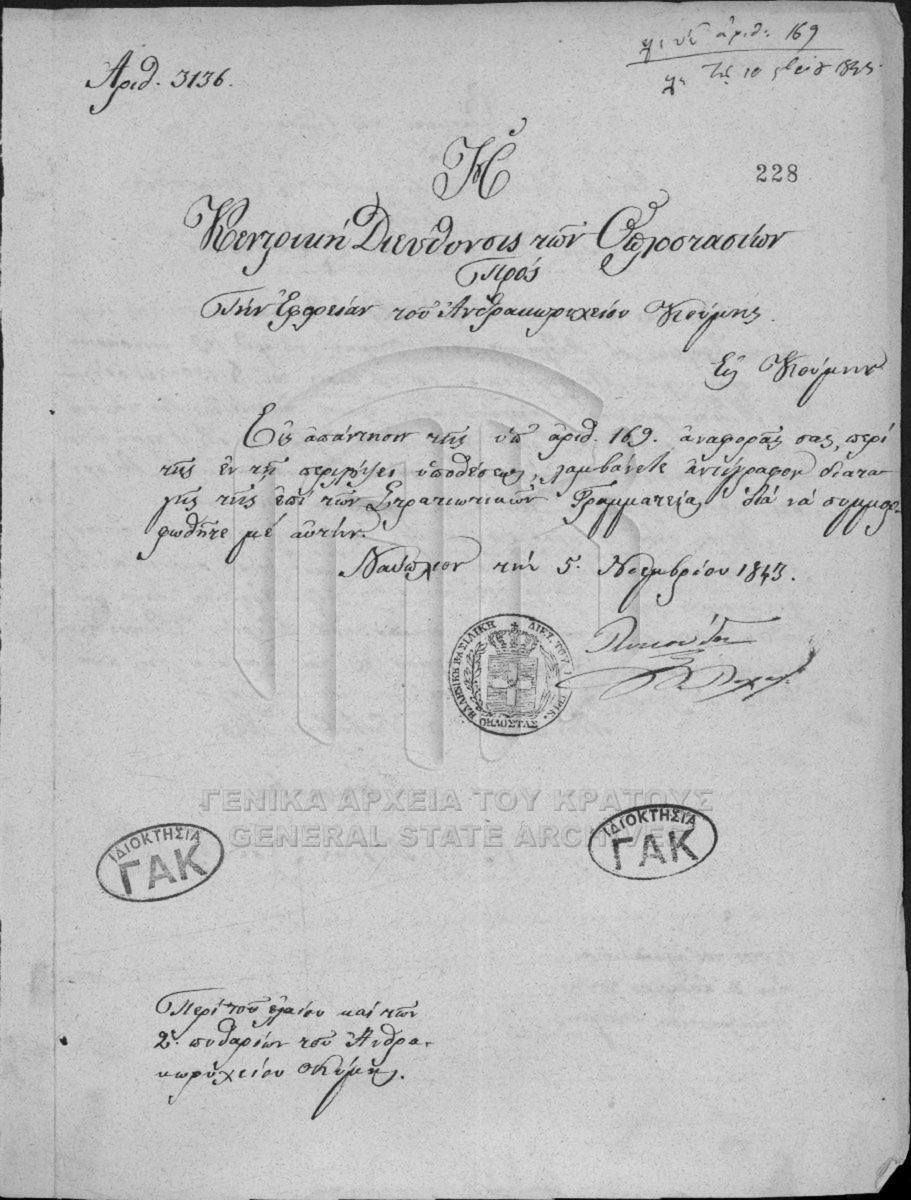 ἀριθ. 169
Ἀριθ. 3136.
Ἡ
228
Κεντρικὴ Διεύθυνσις τῶν Ὁπλοστασίων
Πρός
Τὴν Ἐφορείαν τοῦ Ἀνθρακωρυχείου Κούμης.
Εἰς Κούμην
Εἰς ἀπάντησιν τῆς ὑπ ἀριθ. 169. ἀναφορᾶς σας, περὶ
τῆς ἐν τῇ περιλήψει ὑποθέσεως, λαμβάνετε ἀντίγραφον διατα
γῆς τῆς ἐπὶ τῶν Στρατιωτικῶν Γραμματείας διὰ νὰ συμμορ
φωθῆτε μὲ αὐτήν.
Ναύπλιον τὴν 5. Νοεμβρίου 1843.
ΕΛΛΗΝΙΚΗ ΒΑΣΙΛΙΚΗ ΔΙΕΥ. ΤΟΥ
ΟΠΛΟΣΤΑΣ
ΓΕΝΙΚΑ ΑΡΧΕΙΑ ΤΟΥ ΚΡΑΤΟΥΣ
GENERAL STATE ARCHIVES
ΙΔΙΟΚΤΗΣΙΑ
ΓΑΚ
ΙΔΙΟΚΤΗΣΙΑ
ΓΑΚ
Περὶ τοῦ ἐλαίου καὶ τῶν
2. πυθαρίων τοῦ Ἀνθρα-
κωρυχείου Κύμης.